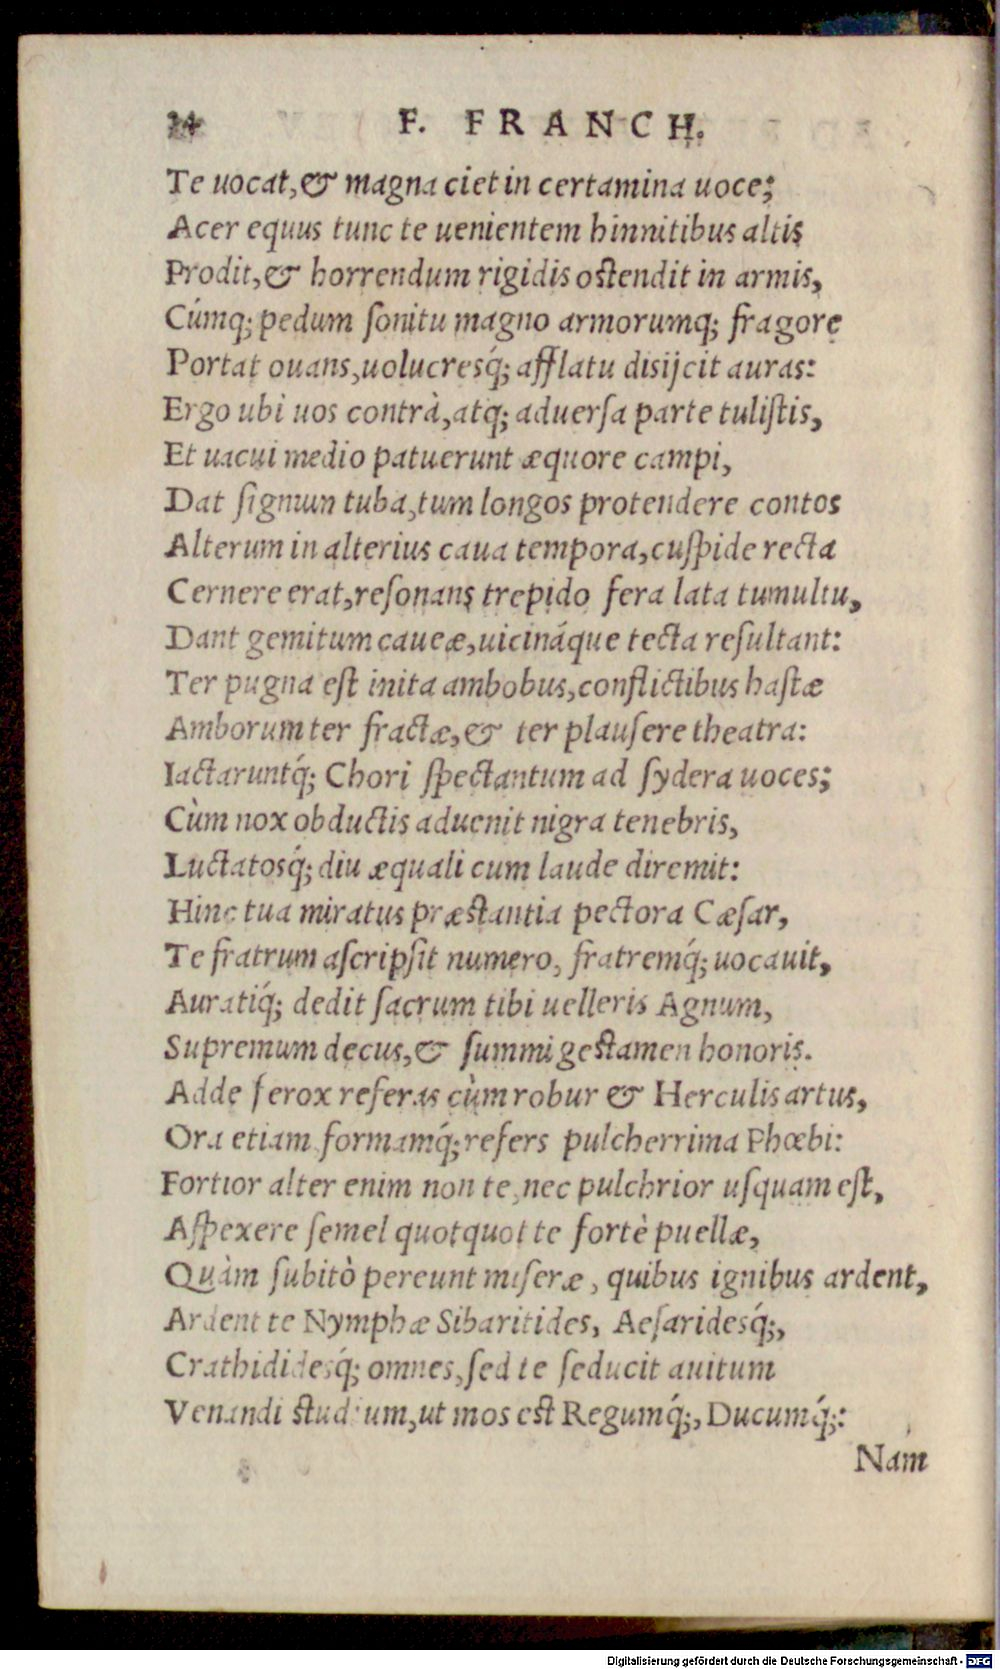 24 F. FRANCH.
Te uocat, & magna ciet in certamina uoce;
Acer equus tunc te uenientem hinnitibus altis
Prodit, & horrendum rigidis ostendit in armis,
Cúmq; pedum ſonitu magno armorumq; fragore
Portat ouans, uolucresq́; afflatu disijcit auras:
Ergo ubi uos contrà, atq; aduerſa parte tuliſtis,
Et uacui medio patuerunt æquore campi,
Dat ſignum tuba, tum longos protendere contos
Alterum in alterius caua tempora, cuſpide recta
Cernere erat, reſonans trepido fera lata tumultu,
Dant gemitum caueæ, uicináque tecta reſultant:
Ter pugna eſt inita ambobus, conflictibus haſtæ
Amborum ter fractæ, & ter plauſere theatra:
Iactaruntq́; Chori ſpectantum ad ſydera uoces;
Cùm nox obductis aduenit nigra tenebris,
Luctatosq́; diu æquali cum laude diremit:
Hinc tua miratus præstantia pectora Cæſar,
Te fratrum aſcripſit numero, fratremq́; uocauit,
Auratiq́; dedit ſacrum tibi uelleris Agnum,
Supremum decus, & ſummi gestamen honoris.
Adde ferox referas cùm robur & Herculis artus,
Ora etiam formamq́; refers pulcherrima Phœbi:
Fortior alter enim non te, nec pulchrior uſquam eſt,
Aſpexere ſemel quotquot te fortè puellæ,
Quàm ſubitò pereunt miſeræ, quibus ignibus ardent,
Ardent te Nymphæ Sibaritides, Aeſaridesq́;,
Crathididesq́; omnes, ſed te ſeducit auitum
Venandi studium, ut mos est Regumq́;, Ducumq́;:
Nam
Digitalisierung gefördert durch die Deutsche Forschungsgemeinschaft - DFG